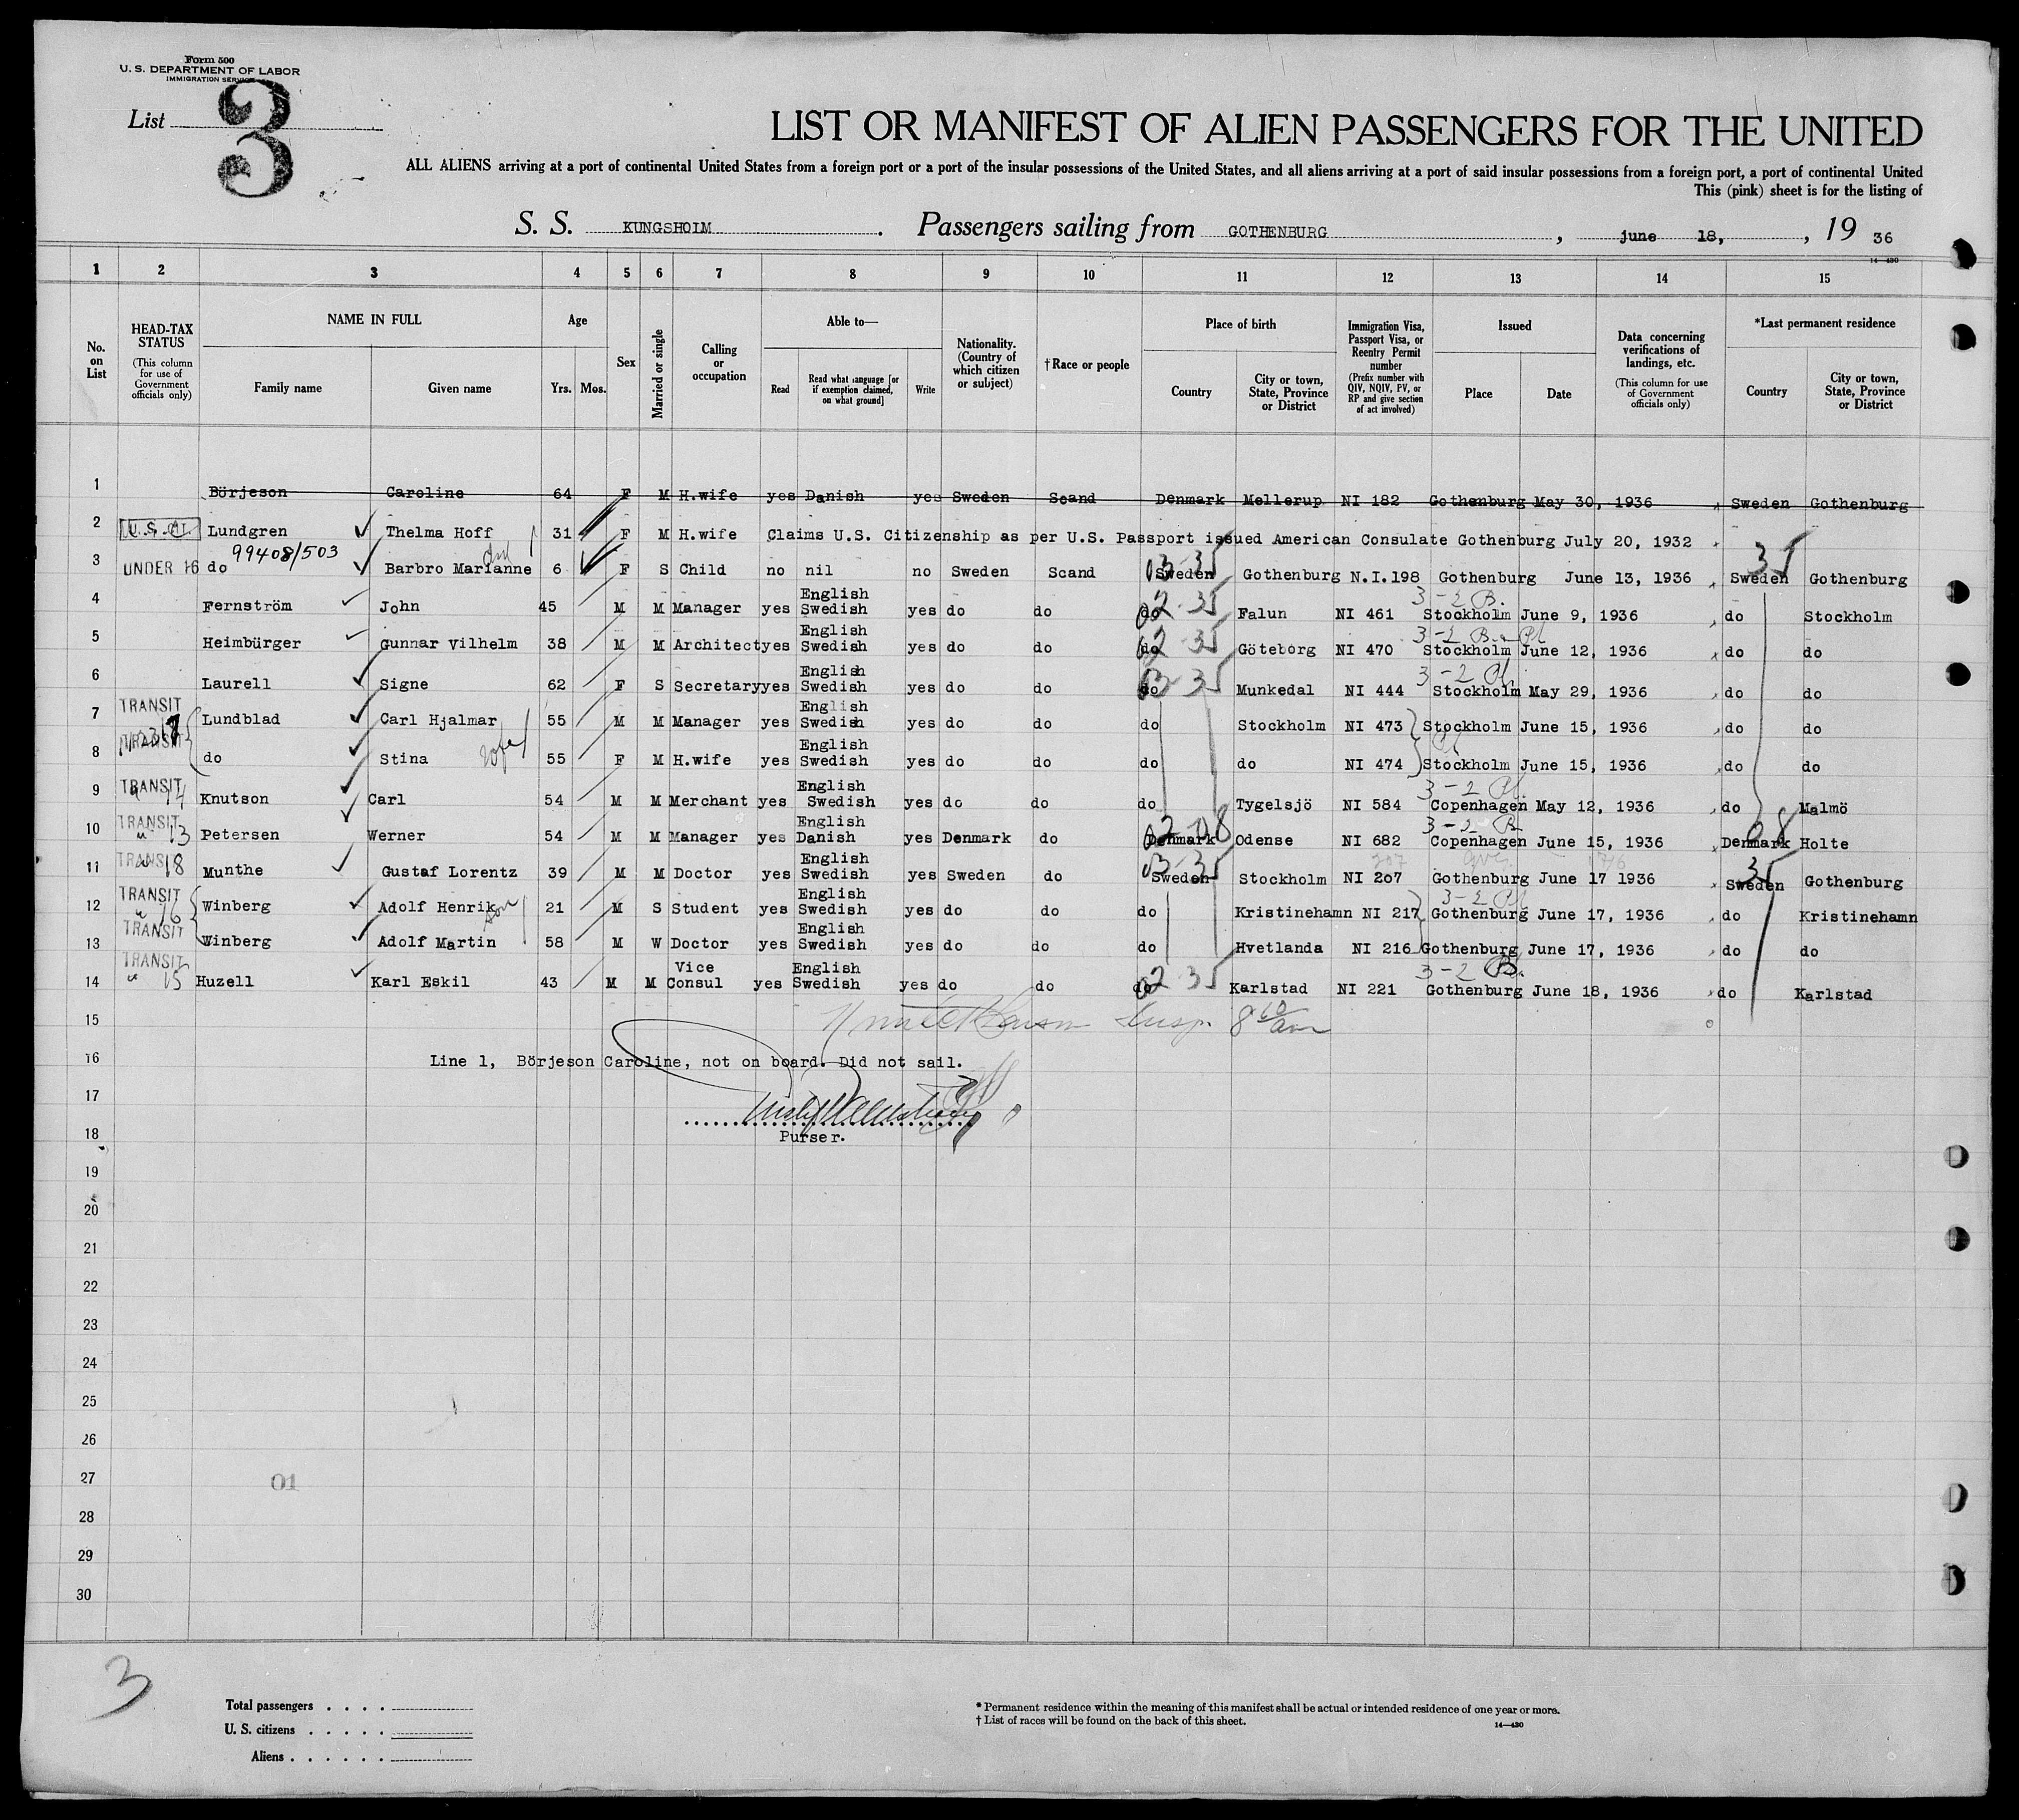 Form 500
U. S. DEPARTMENT OF LABOR
IMMIGRATION SERVICE
List 3
LIST OR MANIFEST OF ALIEN PASSENGERS FOR THE UNITED
ALL ALIENS arriving at a port of continental United States from a foreign port or a port of the insular possessions of the United States, and all aliens arriving at a port of said insular possessions from a foreign port, a port of continental United
This (pink) sheet is for the listing of
S. S. KUNGSHOIM. Passengers sailing from GOTHENBURG, june 18, , 19 36
14—430
1 2 3 4 5 6 7 8 9 10 11 12 13 14 15
No. on List
HEAD-TAX STATUS (This column for use of Government officials only)
NAME IN FULL
Family name
Given name
Age
Yrs. Mos.
Sex
Married or single
Calling or occupation
Able to—
Read
Read what language [or if exemption claimed, on what ground]
Write
Nationality. (Country of which citizen or subject)
† Race or people
Place of birth
Country
City or town, State, Province or District
Immigration Visa, Passport Visa, or Reentry Permit number (Prefix number with QIV, NQIV, PV, or RP and give section of act involved)
Issued
Place
Date
Data concerning verifications of landings, etc. (This column for use of Government officials only)
*Last permanent residence
Country
City or town, State, Province or District
1 Börjeson Caroline 64 F M H.wife yes Danish yes Sweden Scand Denmark Mellerup NI 182 Gothenburg May 30, 1936 Sweden Gothenburg
2 Lundgren Thelma Hoff 31 F M H.wife Claims U.S. Citizenship as per U.S. Passport issued American Consulate Gothenburg July 20, 1932
99408/503
3 UNDER 16 do Barbro Marianne 6 F S Child no nil no Sweden Scand Sweden Gothenburg N.I.198 Gothenburg June 13, 1936 Sweden Gothenburg
03-35 35
4 Fernström John 45 M M Manager yes English Swedish yes do do do Falun NI 461 Stockholm June 9, 1936 do Stockholm
02-35 3-2 B.
5 Heimbürger Gunnar Vilhelm 38 M M Architect yes English Swedish yes do do do Göteborg NI 470 Stockholm June 12, 1936 do do
02-35
6 Laurell Signe 62 F S Secretary yes English Swedish yes do do do Munkedal NI 444 Stockholm May 29, 1936 do do
03-35
7 TRANSIT Lundblad Carl Hjalmar 55 M M Manager yes English Swedish yes do do do Stockholm NI 473 Stockholm June 15, 1936 do do
8 TRANSIT do Stina wife 55 F M H.wife yes English Swedish yes do do do do NI 474 Stockholm June 15, 1936 do do
9 TRANSIT 14 Knutson Carl 54 M M Merchant yes English Swedish yes do do do Tygelsjö NI 584 Copenhagen May 12, 1936 do Malmö
10 TRANSIT 13 Petersen Werner 54 M M Manager yes English Danish yes Denmark do Denmark Odense NI 682 Copenhagen June 15, 1936 Denmark Holte
02-08 08
11 TRANSIT 18 Munthe Gustaf Lorentz 39 M M Doctor yes English Swedish yes Sweden do Sweden Stockholm NI 207 Gothenburg June 17 1936 Sweden Gothenburg
03-35 35
12 TRANSIT 16 Winberg Adolf Henrik son 21 M S Student yes English Swedish yes do do do Kristinehamn NI 217 Gothenburg June 17, 1936 do Kristinehamn
13 TRANSIT Winberg Adolf Martin 58 M W Doctor yes English Swedish yes do do do Hvetlanda NI 216 Gothenburg June 17, 1936 do do
14 TRANSIT 15 Huzell Karl Eskil 43 M M Vice Consul yes English Swedish yes do do do Karlstad NI 221 Gothenburg June 18, 1936 do Karlstad
02-35 3-2 B.
15
16 Line 1, Börjeson Caroline, not on board. Did not sail.
17
18 Purser.
19
20
21
22
23
24
25
26
27 01
28
29
30
3
Total passengers . . . .
U. S. citizens . . . . .
Aliens . . . . . .
* Permanent residence within the meaning of this manifest shall be actual or intended residence of one year or more.
† List of races will be found on the back of this sheet. 14—430